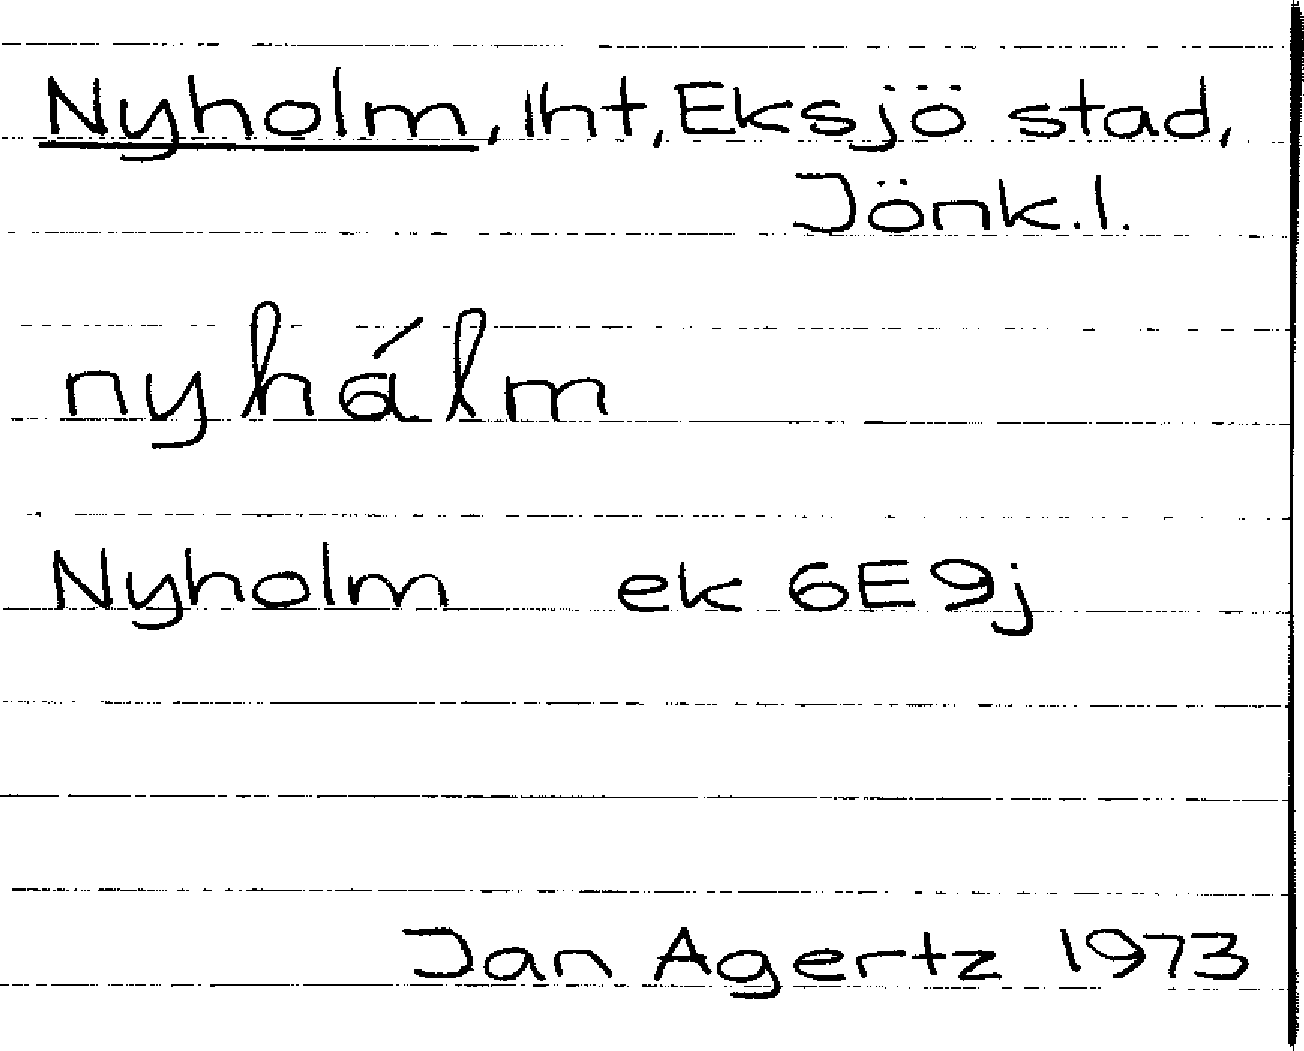 Nyholm, lht, Eksjö stad,
Jönk.l.
nyhálm
Nyholm ek 6E9j
Jan Agertz 1973